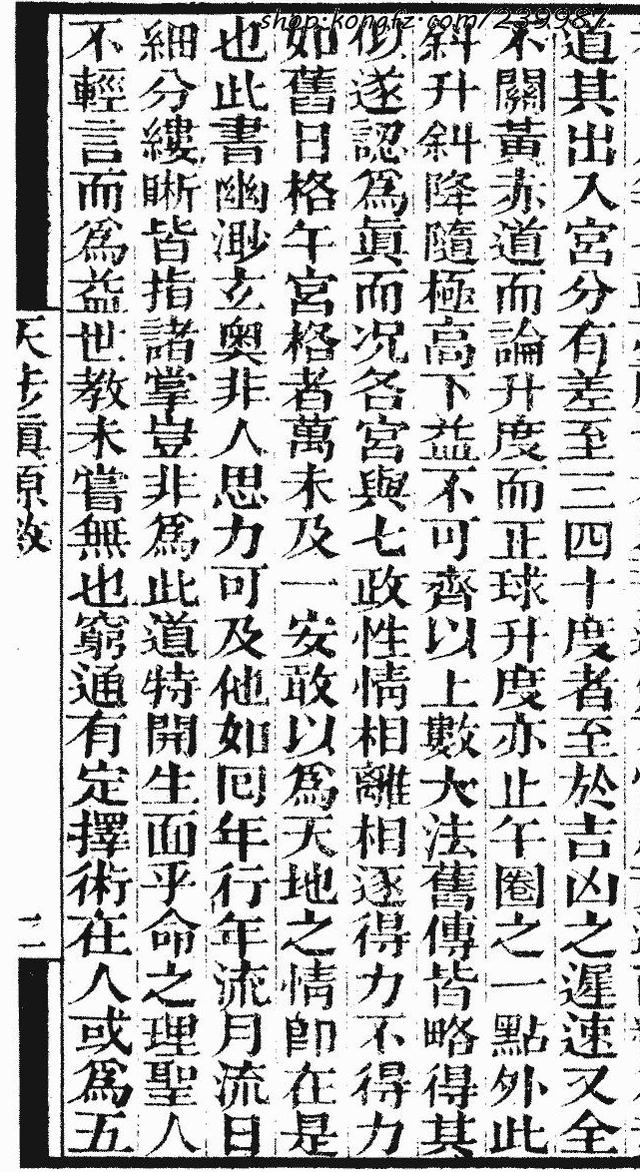 shop.kongfz.com/239987
道其出入宮分有差至三四十度者至於吉凶之遲速又全
不關黃赤道而論升度而正球升度亦止午圈之一點外此
斜升斜降隨極高下益不可齊以上數大法舊傳皆略得其
似遂認爲眞而況各宮與七政性情相離相逐得力不得力
如舊日格午宮格者萬未及一安敢以爲天地之情卽在是
也此書幽渺玄奧非人思力可及他如囘年行年流月流日
細分縷晰皆指諸掌豈非爲此道特開生面乎命之理聖人
不輕言而爲益世教未嘗無也窮通有定擇術在人或爲五
天步眞原敘
二